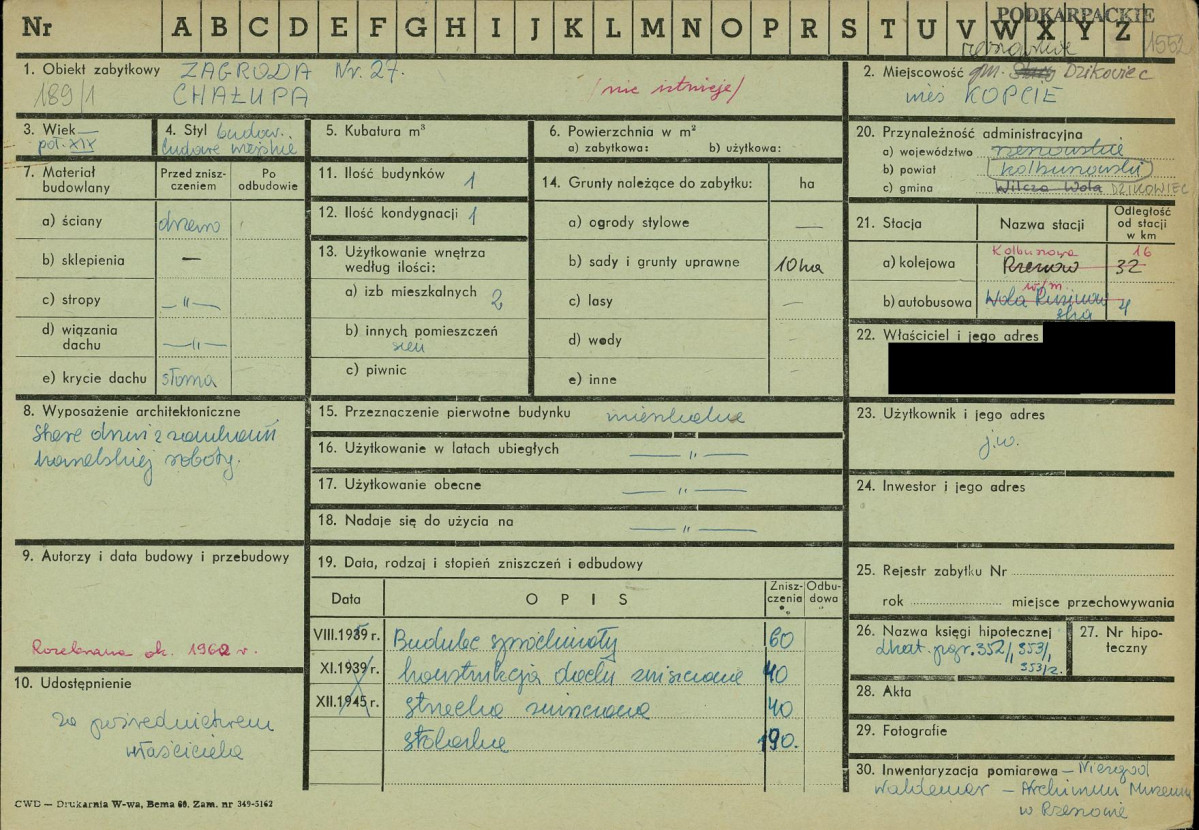 Nr A B C D E F G H I J K L M N O P R S T U V W X Y Z
PODKARPACKIE
1552
1. Obiekt zabytkowy ZAGRODA Nr. 27.
189/1 CHAŁUPA
/nie istnieje/
2. Miejscowość gm. Dzikowiec
wieś KOPCIE
3. Wiek
poł. XIX
4. Styl budow.
ludowe wiejskie
5. Kubatura m³
6. Powierzchnia w m²
a) zabytkowa: b) użytkowa:
20. Przynależność administracyjna
a) województwo rzeszowskie
b) powiat kolbuszowski
c) gmina Wilcza Wola DZIKOWIEC
7. Materiał budowlany
Przed znisz-
czeniem
Po
odbudowie
a) ściany drzewo
b) sklepienia —
c) stropy —"—
d) wiązania
dachu —"—
e) krycie dachu słoma
11. Ilość budynków 1
12. Ilość kondygnacji 1
13. Użytkowanie wnętrza
według ilości:
a) izb mieszkalnych 2
b) innych pomieszczeń
sień
c) piwnic
14. Grunty należące do zabytku: ha
a) ogrody stylowe —
b) sady i grunty uprawne 10 ha
c) lasy —
d) wody -
e) inne
21. Stacja
Nazwa stacji
Odległość
od stacji
w km
Kolbuszowa 16
a) kolejowa Rzeszów 32
w/m.
b) autobusowa Wola Rusinow
ska 4
22. Właściciel i jego adres
8. Wyposażenie architektoniczne
Stare drzwi z zamkami
kowalskiej roboty.
15. Przeznaczenie pierwotne budynku mieszkalne
16. Użytkowanie w latach ubiegłych —"—
17. Użytkowanie obecne —"—
18. Nadaje się do użycia na —"—
23. Użytkownik i jego adres
j.w.
24. Inwestor i jego adres
9. Autorzy i data budowy i przebudowy
Rozebrana ok. 1962 r.
19. Data, rodzaj i stopień zniszczeń i odbudowy
Data
OPIS
Znisz-
czenia
%
Odbu-
dowa
"
VIII.1939 r. Budulec spróchniały 60
XI.1939 r. konstrukcja dachu zniszczona 40
XII.1945 r. strzecha zniszczona 40
stolarka 190.
25. Rejestr zabytku Nr
rok miejsce przechowywania
26. Nazwa księgi hipotecznej
Lkat. pgr. 352/1, 353/1,
353/2.
27. Nr hipo-
teczny
10. Udostępnienie
za pośrednictwem
właściciela
28. Akta
29. Fotografie
30. Inwentaryzacja pomiarowa – Niezgod
Waldemar – Archiwum Muzeum
w Rzeszowie
CWD — Drukarnia W-wa, Bema 60. Zam. nr 349-5162